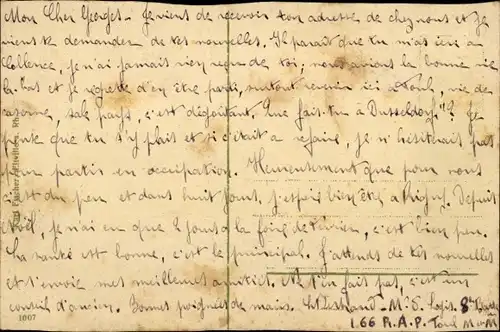 Mon Cher Georges - Je viens de recevoir ton adresse de chez nous et je
viens te demander de tes nouvelles. Il paraît que tu m'as écris à
Coblence, je n'ai jamais rien reçu de toi; nous avions la bonne vie
là-bas et je regrette d'en être parti, surtout revenir ici à Toul, vie de
caserne, sale pays, c'est dégoûtant. Que fais-tu à Dusseldorf? Je
pense que tu s'y plait et si c'était à refaire, je n'hésiterais pas
pour partir en occupation. Heureusement que pour nous
c'est du peu et dans huit jours, j'espère bien être à
Avril, je n'ai eu que 2 jours à la foire de, c'est bien peu.
La santé est bonne, c'est le principal. J'attends de tes nouvelles
et t'envoie mes meilleures amitiés. Ne t'en fait pas, c'est un
conseil d'ancien. Bonnes poignées de mains. M. d. Logis. 8e
166 R.A.P. Toul M et M
1007